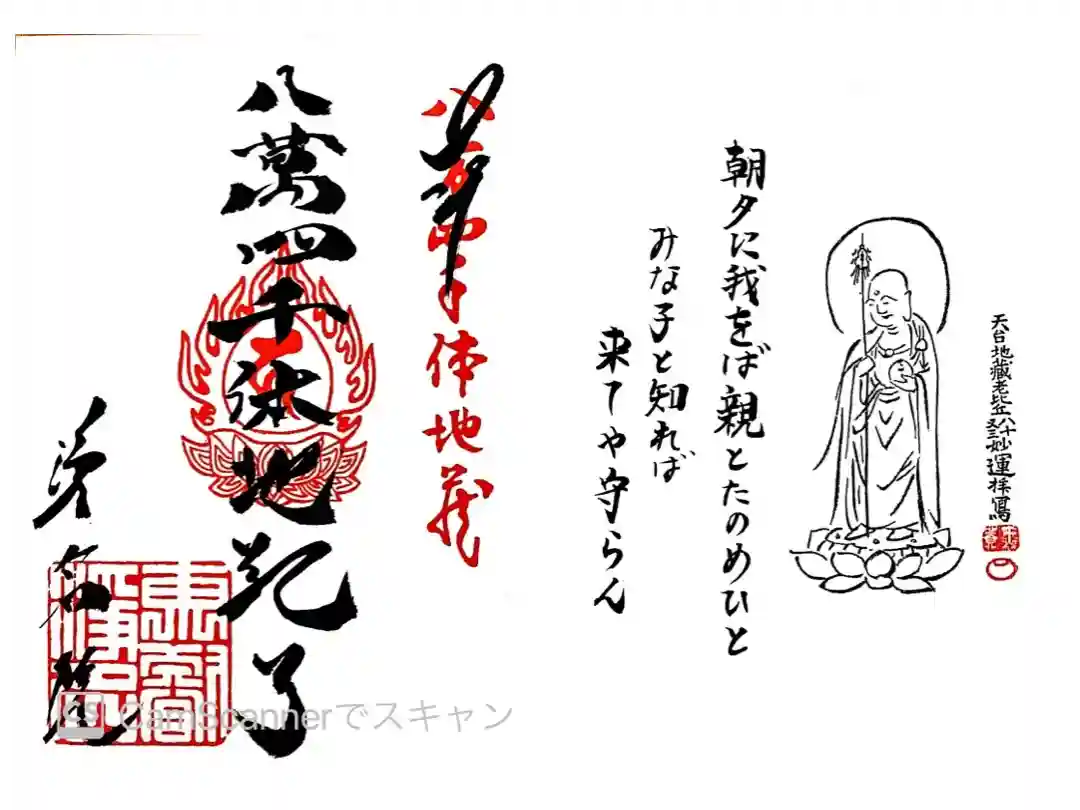 天台地藏老比丘八十又三妙運拝寫
朝夕に我をば親とたのめひと
みな子と知れば
来てや守らん
奉拝
八万四千体地蔵
八萬四千体地蔵尊
浄名院
CS CamScannerでスキャン